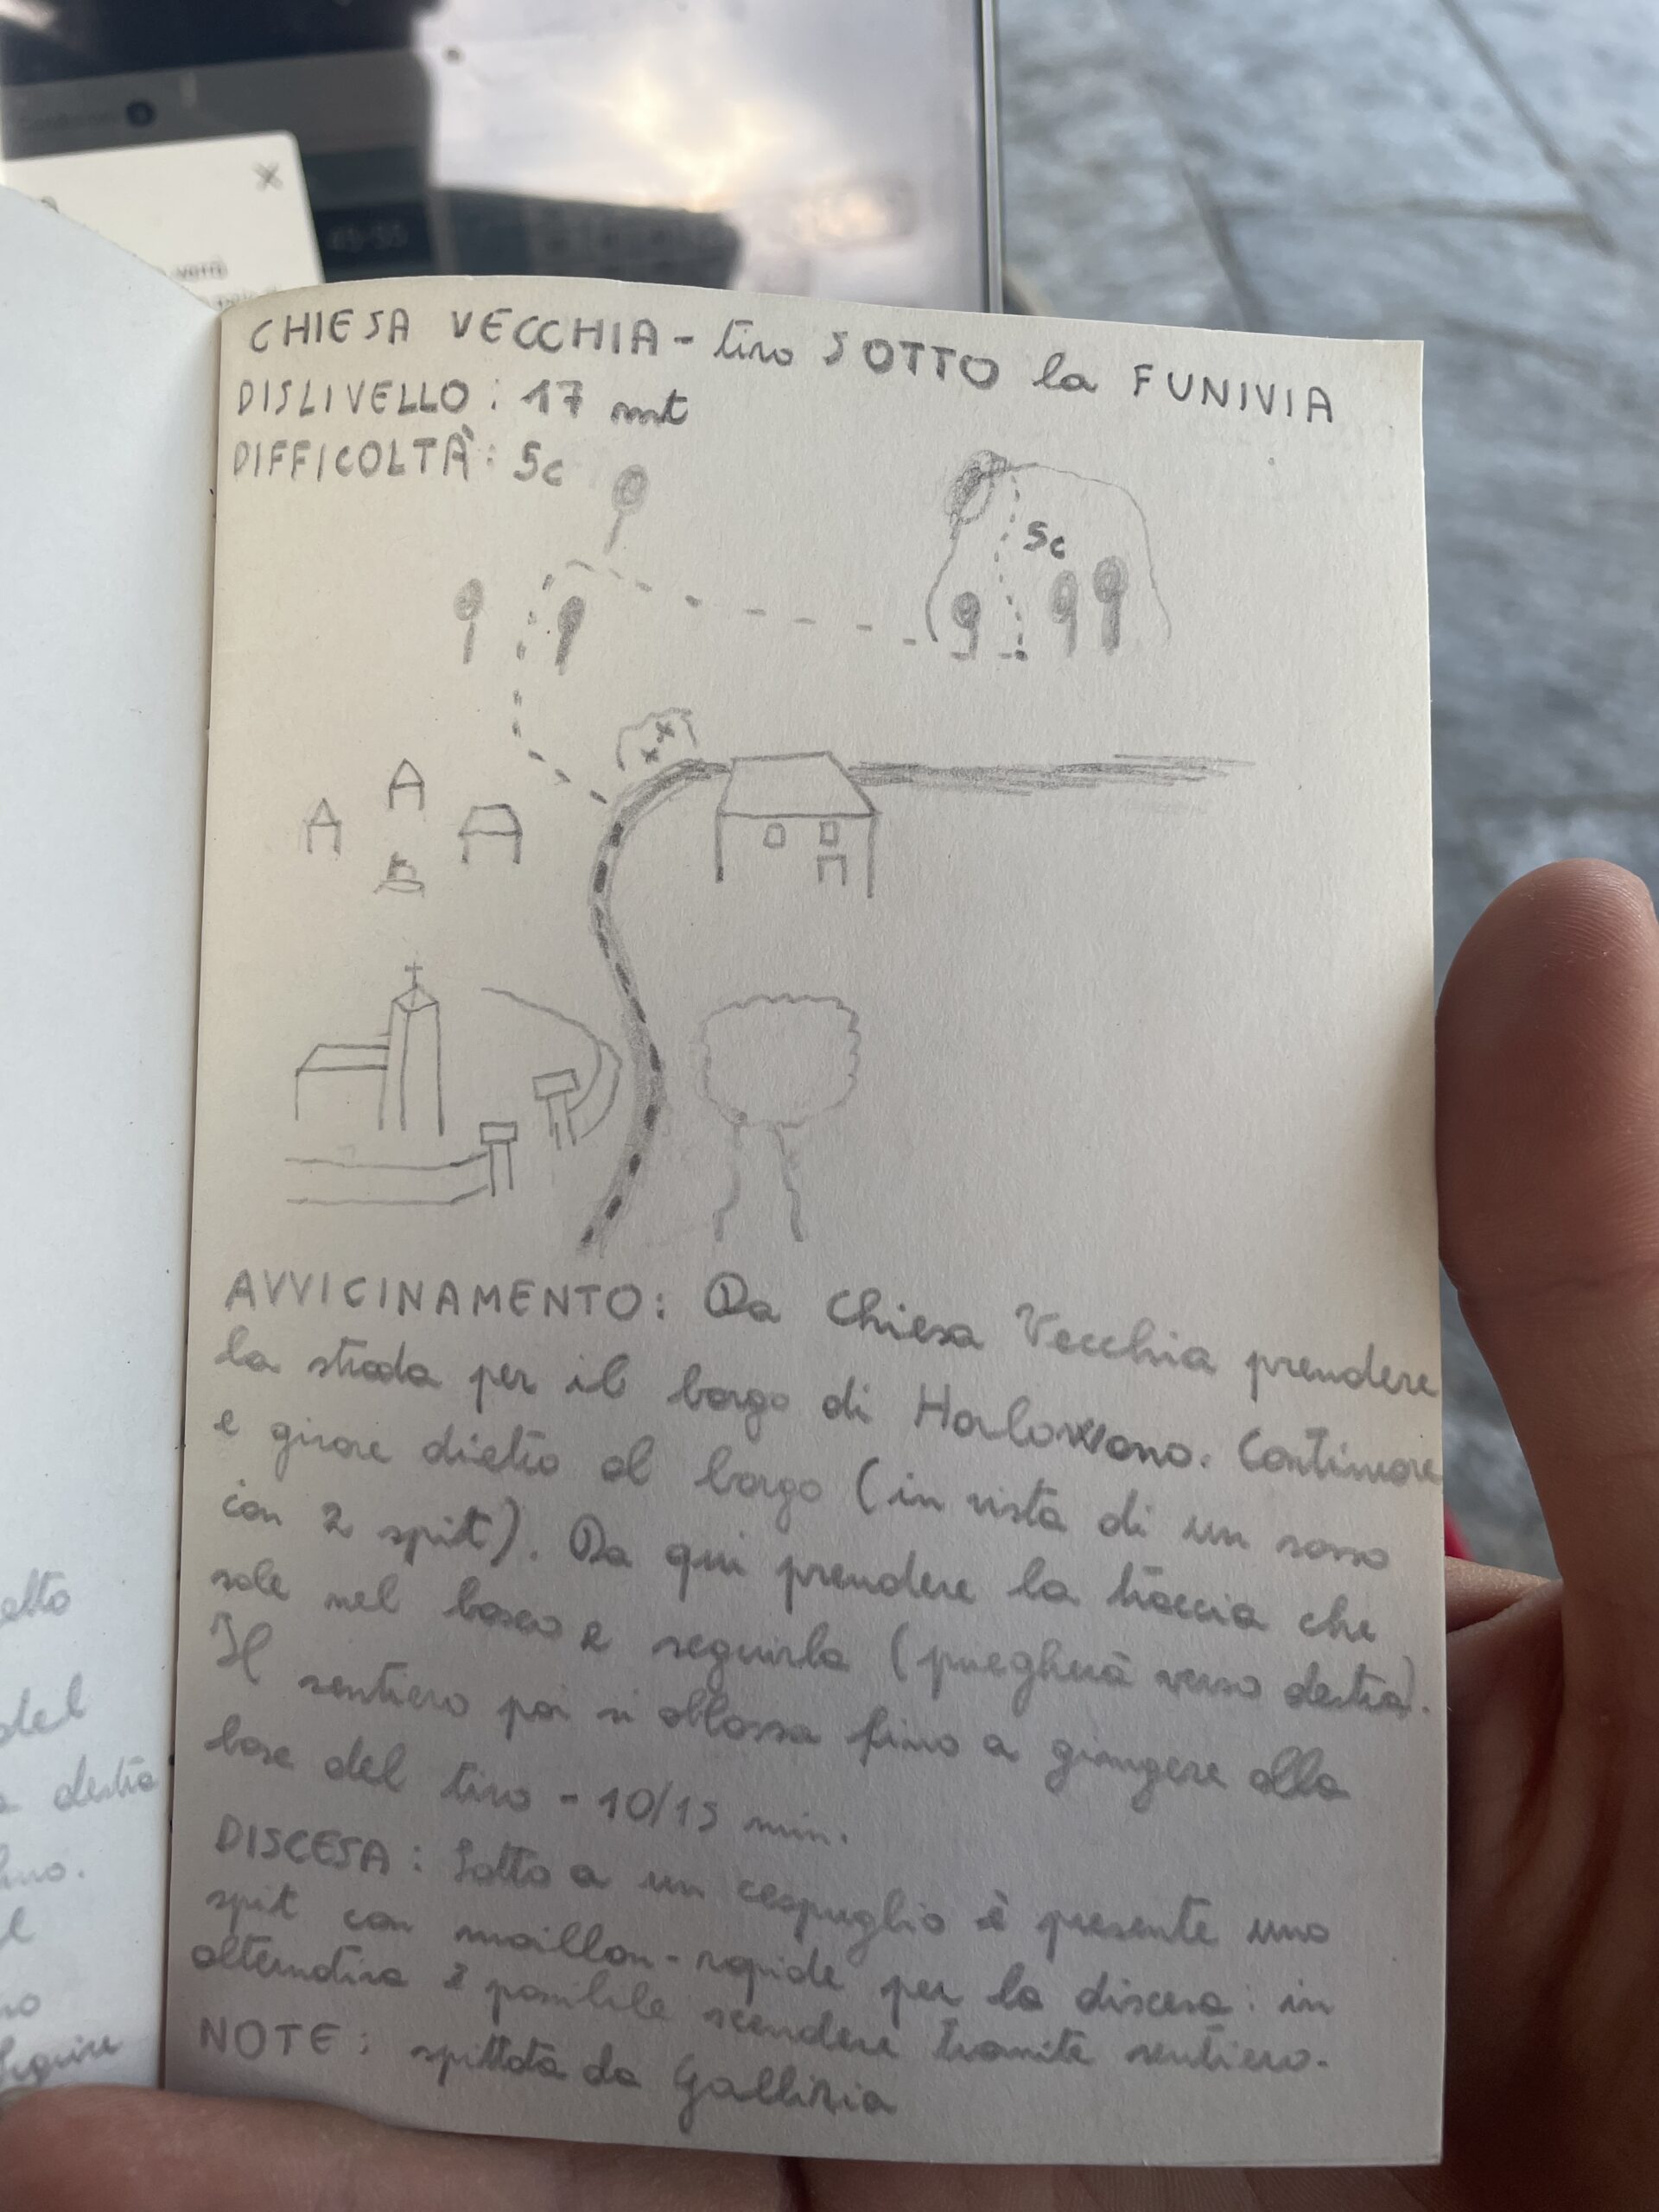 CHIESA VECCHIA - tiro SOTTO la FUNIVIA
DISLIVELLO: 17 mt
DIFFICOLTÀ: 5c
5c
AVVICINAMENTO: Da Chiesa Vecchia prendere
la strada per il borgo di
Continuare
e girare dietro al borgo (in vista di un sasso
con 2 spit). Da qui prendere la traccia che
sale nel bosco e seguirla (piegherà verso destra).
Il sentiero poi si abbassa fino a giungere alla
base del tiro - 10/15 min.
DISCESA: Sotto a un cespuglio è presente uno
spit con maillon-rapide per la discesa: in
alternativa è possibile scendere tramite sentiero.
NOTE: spittata da
etto
del
destra
45-55